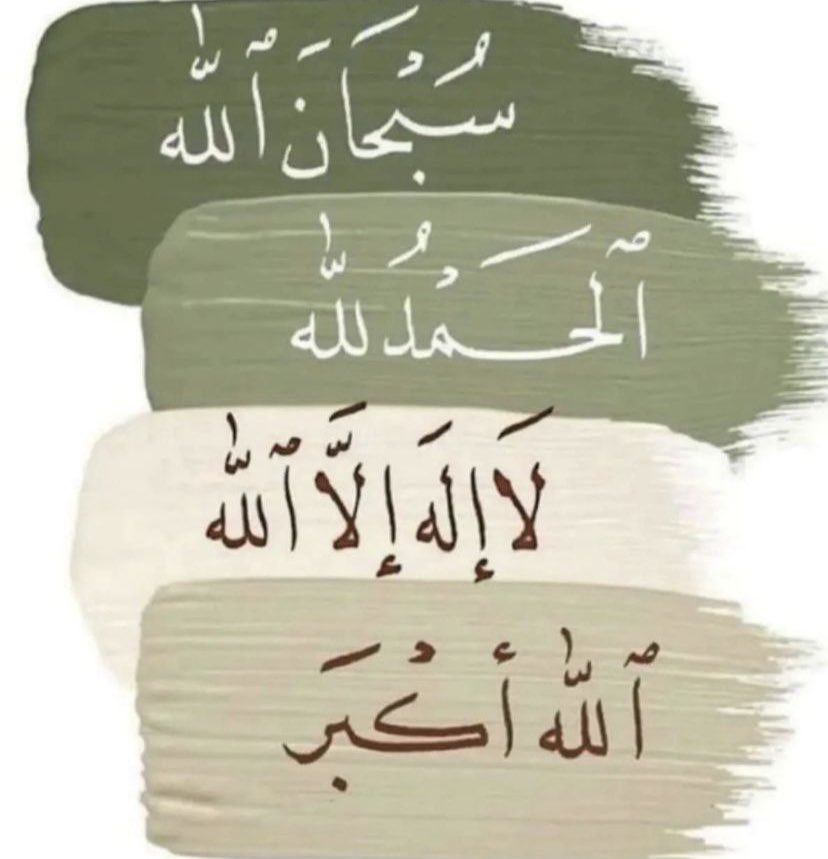 سُبْحَانَ ٱللّٰه
ٱلْحَمْدُ لِلّٰه
لَا إِلَٰهَ إِلَّا ٱللّٰه
ٱللّٰه أَكْبَر